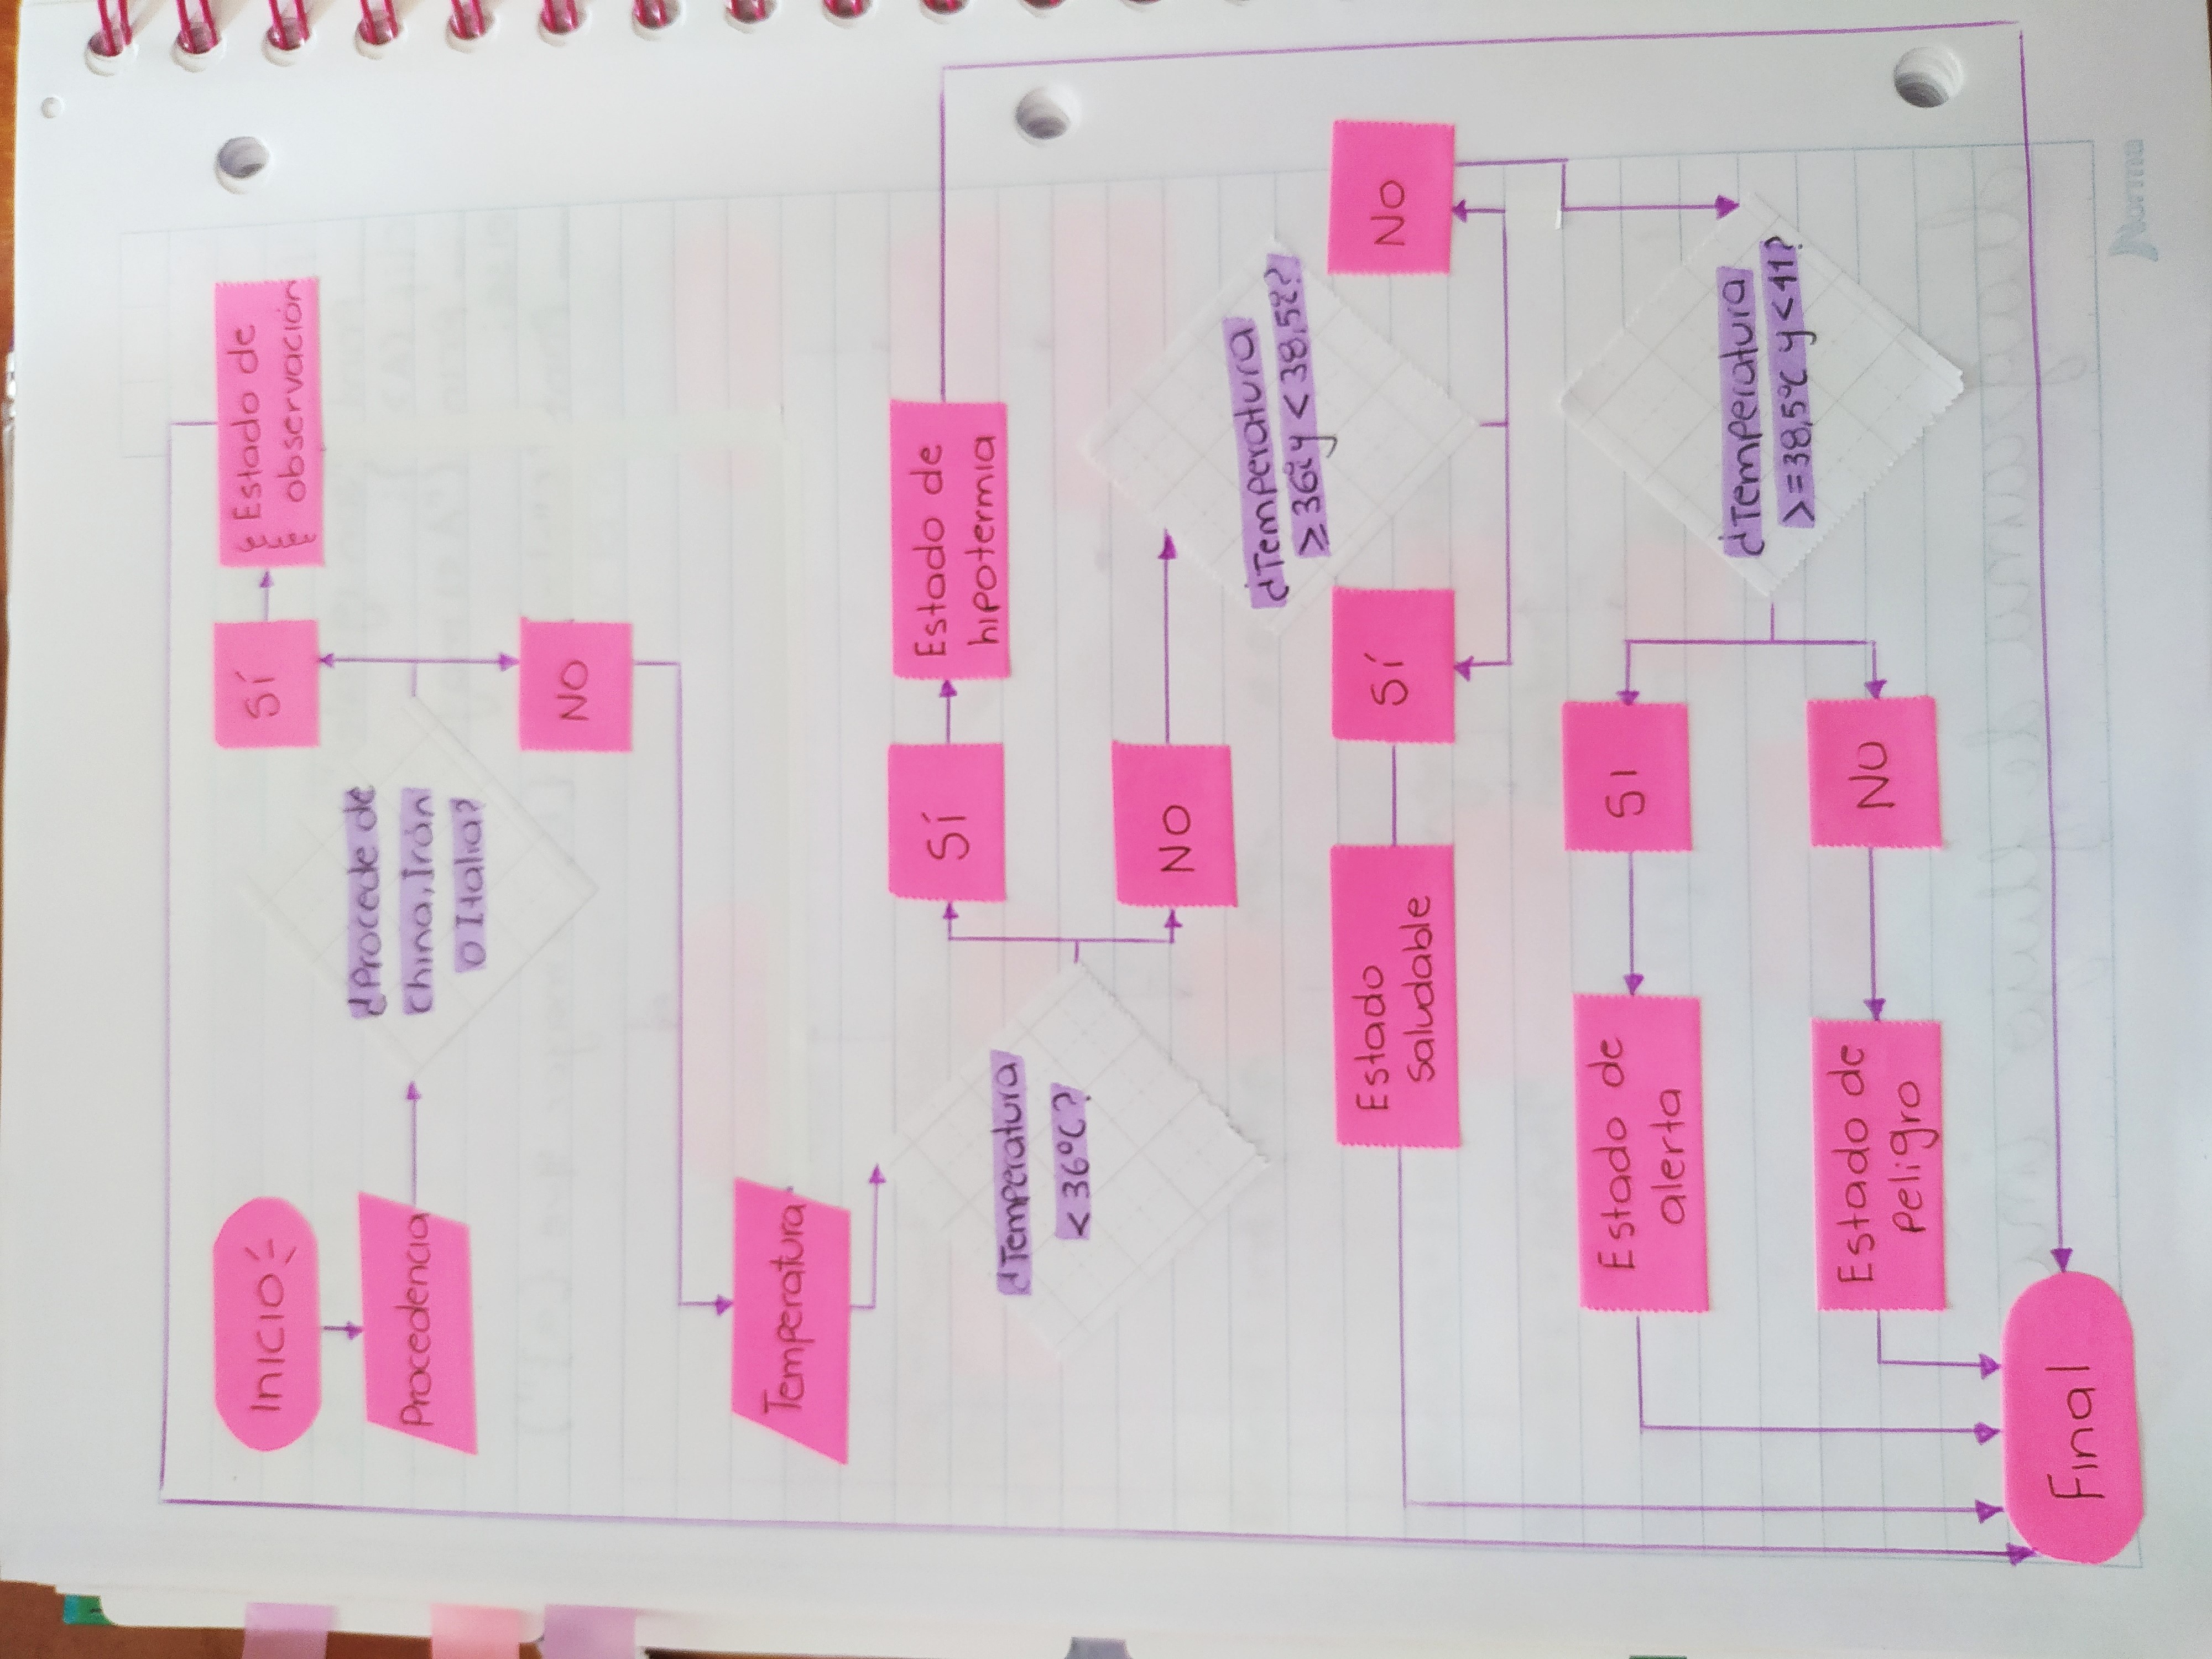 INICIO
Procedencia
¿Procede de
China, Irán
o Italia?
SÍ
Estado de
observación
NO
Temperatura
¿Temperatura
< 36°C?
SÍ
Estado de
hipotermia
NO
¿Temperatura
≥ 36° y < 38,5°?
NO
SÍ
Estado
Saludable
¿Temperatura
>= 38,5°C y < 41?
SI
Estado de
alerta
NO
Estado de
Peligro
Final
Norma